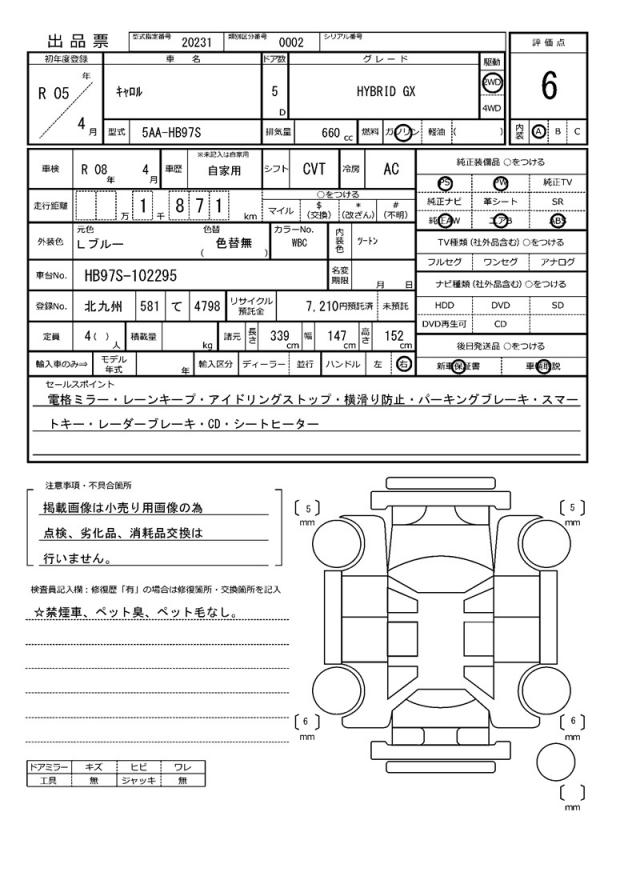 出品票
型式指定番号 20231 類別区分番号 0002 シリアル番号
評価点
6
初年度登録 車名 ドア数 グレード 駆動
R 05 年 4 月
ｷｬﾛﾙ
5 D
HYBRID GX
2WD
4WD
型式 5AA-HB97S 排気量 660 cc 燃料 ガソリン 軽油 ( )
内装 A B C
車検 R 08 年 4 月 車歴 ※未記入は自家用 自家用 シフト CVT 冷房 AC
走行距離 万 1 千 8 7 1 km
○をつける
マイル $(交換) *(改ざん) #(不明)
外装色 元色 Lブルー 色替 色替無 ( ) カラーNo. WBC 内装色 ﾂｰﾄﾝ
車台No. HB97S-102295 名変期限 月 日
登録No. 北九州 581 て 4798 リサイクル預託金 7,210円預託済 未預託
定員 4( ) 人 積載量 kg 諸元 長さ 339 cm 幅 147 cm 高さ 152 cm
輸入車のみ⇒ モデル年式 年 輸入区分 ディーラー 並行 ハンドル 左 右
純正装備品 ○をつける
PS PW 純正TV
純正ナビ 革シート SR
純正AW エアB ABS
TV種類(社外品含む) ○をつける
フルセグ ワンセグ アナログ
ナビ種類(社外品含む) ○をつける
HDD DVD SD
DVD再生可 CD
後日発送品 ○をつける
新車保証書 車輌取説
セールスポイント
電格ミラー・レーンキープ・アイドリングストップ・横滑り防止・パーキングブレーキ・スマー
トキー・レーダーブレーキ・CD・シートヒーター
注意事項・不具合箇所
掲載画像は小売り用画像の為
点検、劣化品、消耗品交換は
行いません。
検査員記入欄：修復歴「有」の場合は修復箇所・交換箇所を記入
☆禁煙車、ペット臭、ペット毛なし。
5 mm
5 mm
6 mm
6 mm
mm
ドアミラー キズ ヒビ ワレ
工具 無 ジャッキ 無